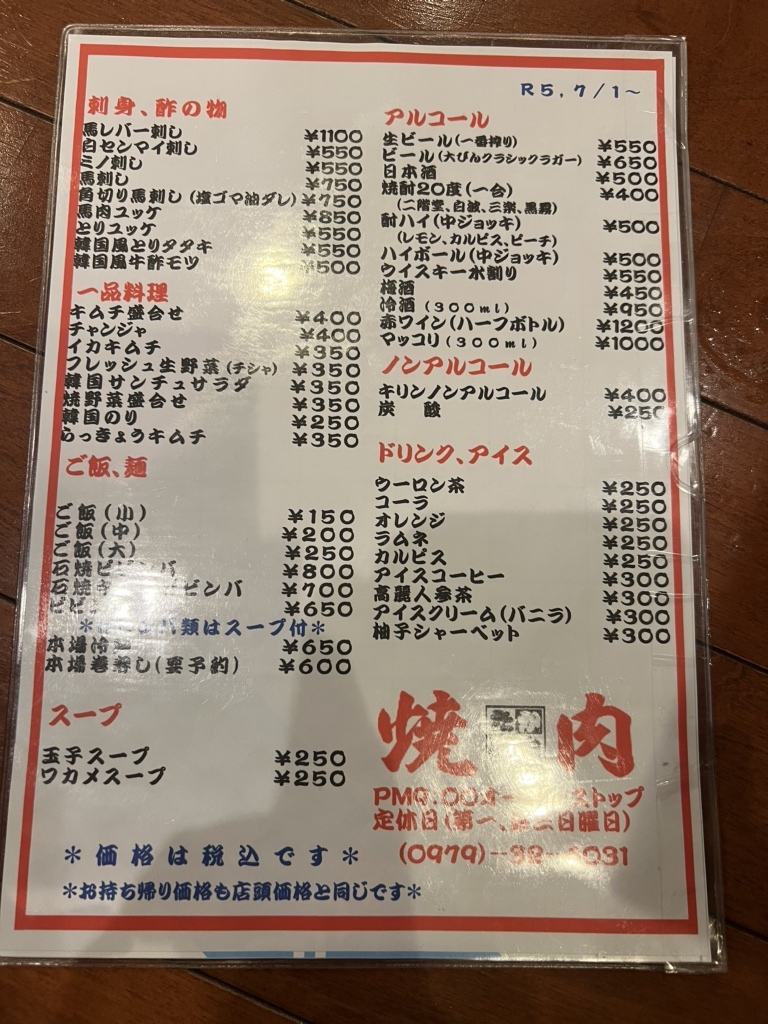 R5,7/1~
刺身、酢の物
馬レバー刺し ¥1100
白センマイ刺し ¥550
ミノ刺し ¥550
馬刺し ¥750
角切り馬刺し(塩ゴマ油ダレ) ¥750
馬肉ユッケ ¥850
とりユッケ ¥550
韓国風とりタタキ ¥550
韓国風牛酢モツ ¥500
一品料理
キムチ盛合せ ¥400
チャンジャ ¥400
イカキムチ ¥350
フレッシュ生野菜(チシャ) ¥350
韓国サンチュサラダ ¥350
焼野菜盛合せ ¥350
韓国のり ¥250
らっきょうキムチ ¥350
ご飯、麺
ご飯(小) ¥150
ご飯(中) ¥200
ご飯(大) ¥250
石焼ビビンバ ¥800
石焼 ビビンバ ¥700
ビビ ¥650
類はスープ付*
本場冷 ¥650
本場巻寿し(要予約) ¥600
スープ
玉子スープ ¥250
ワカメスープ ¥250
*価格は税込です*
*お持ち帰り価格も店頭価格と同じです*
アルコール
生ビール(一番搾り) ¥550
ビール(大びんクラシックラガー) ¥650
日本酒 ¥500
焼酎20度(一合) ¥400
(二階堂、白波、三楽、黒霧)
酎ハイ(中ジョッキ) ¥500
(レモン、カルピス、ピーチ)
ハイボール(中ジョッキ) ¥500
ウイスキー水割り ¥550
梅酒 ¥450
冷酒(300ml) ¥950
赤ワイン(ハーフボトル) ¥1200
マッコリ(300ml) ¥1000
ノンアルコール
キリンノンアルコール ¥400
炭 酸 ¥250
ドリンク、アイス
ウーロン茶 ¥250
コーラ ¥250
オレンジ ¥250
ラムネ ¥250
カルピス ¥250
アイスコーヒー ¥300
高麗人参茶 ¥300
アイスクリーム(バニラ) ¥300
柚子シャーベット ¥300
焼肉
PM9.00オー ストップ
定休日(第一、第三日曜日)
(0979)